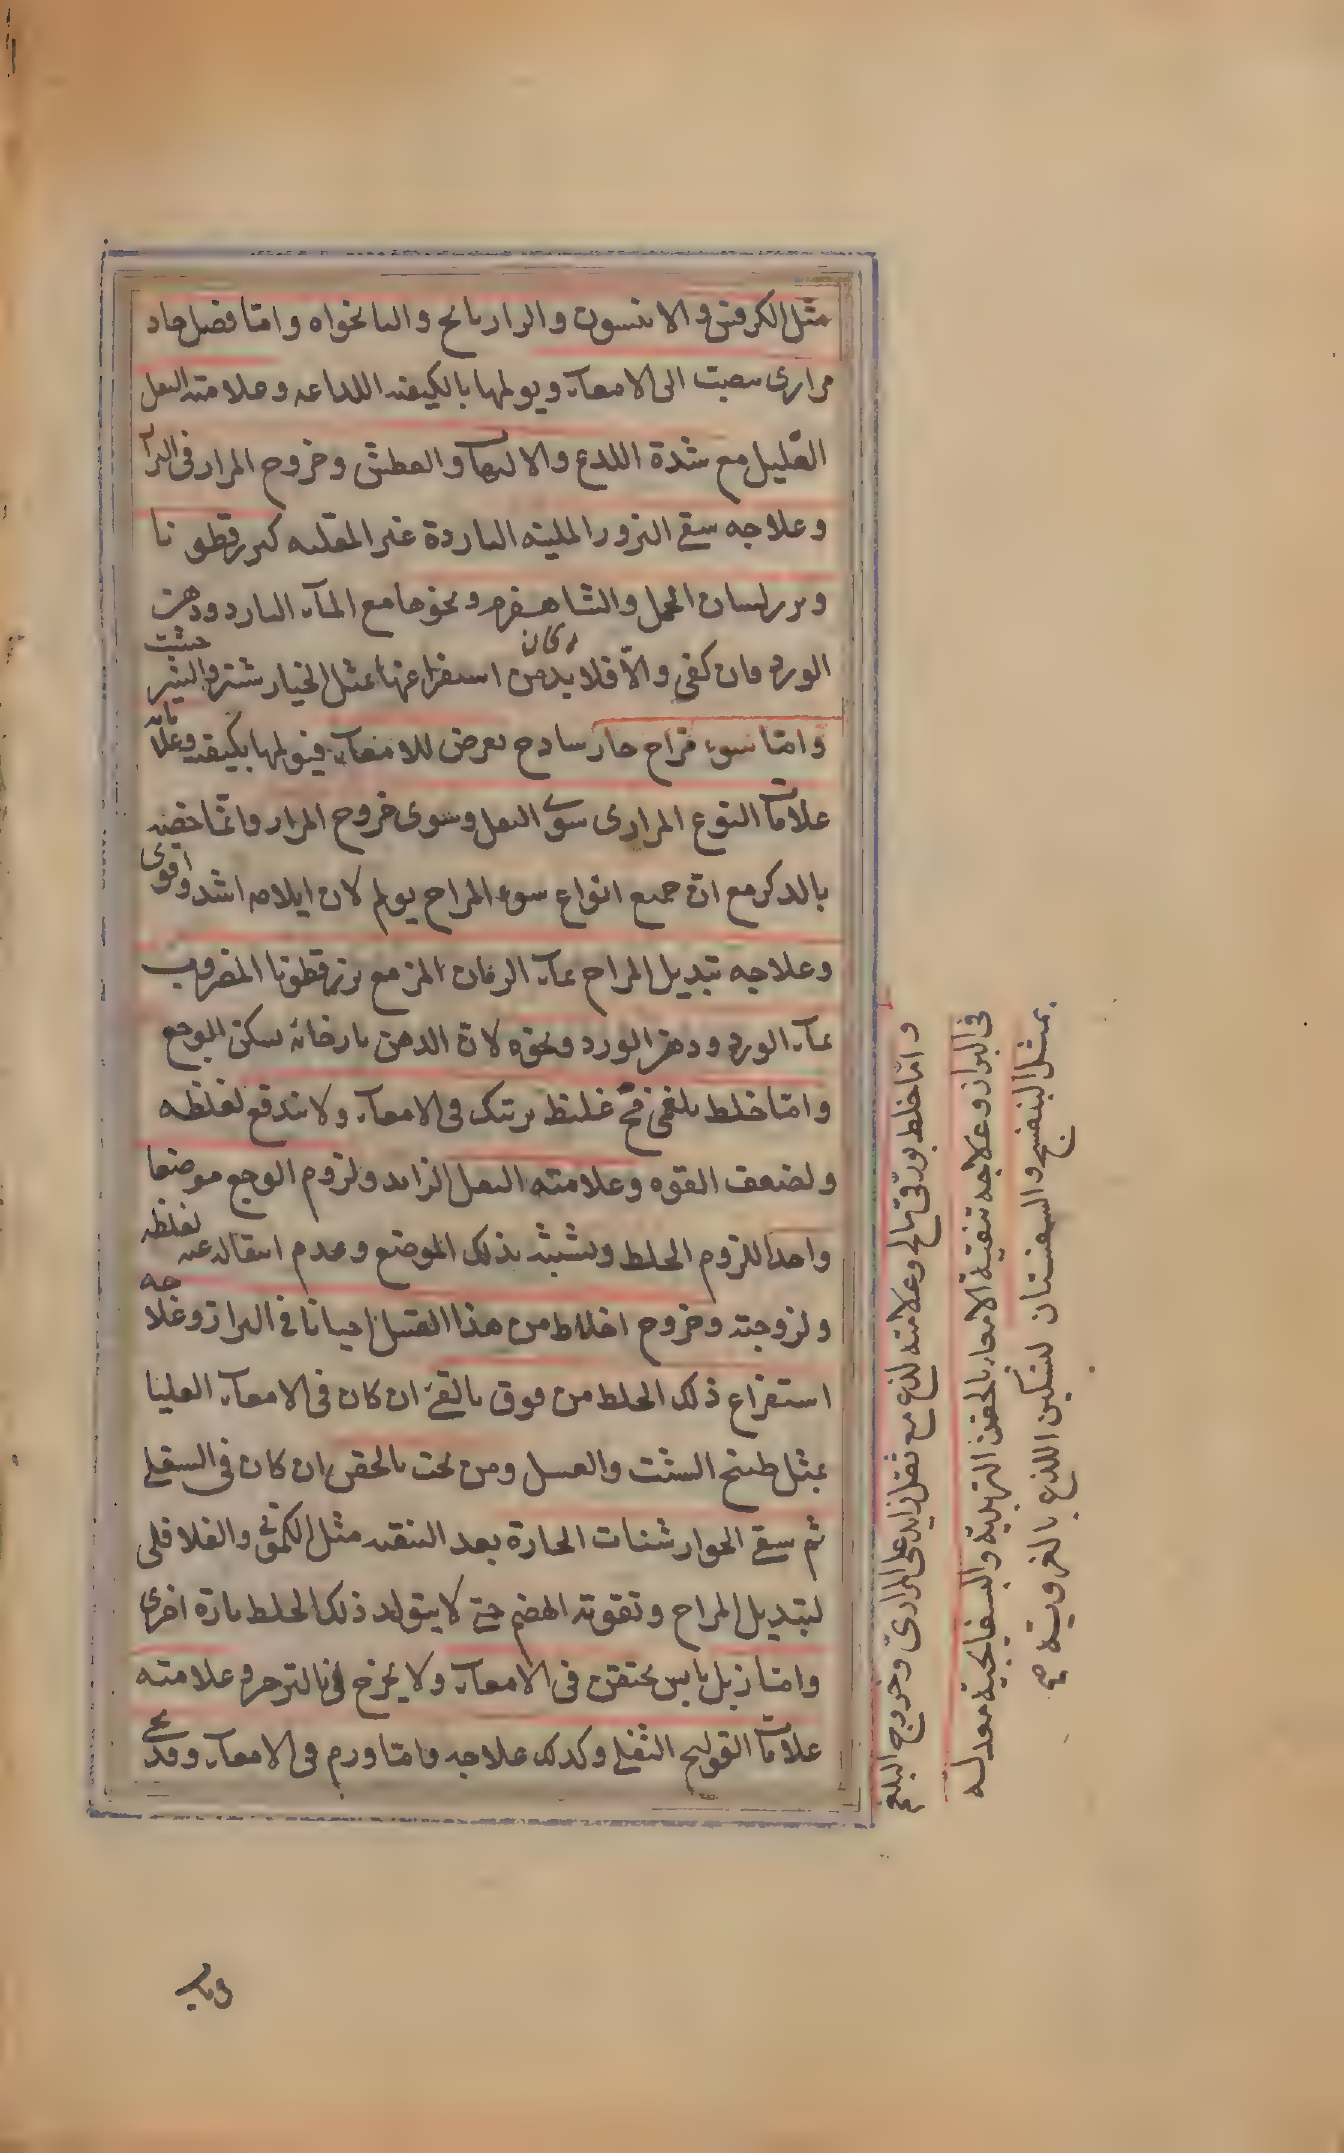 مثل الكرفس والانيسون والرازيانج والنانخواه واما فضل حاد
مرارى ينصب الى الامعآء ويولمها بالكيفيه اللداعه وعلامته الثقل
القليل مع شدة اللدع والالتهاب والعطش وخروج المرار فى البراز
وعلاجه سقى البزور الملينه الباردة غير المقليه كبزر قطونا
وبزر لسان الحمل والشاهسفرم ونحوها مع المآء البارد ودهن
الورد فان كفى والا فلا بد من استفراغها بمثل الخيار شنبر والشير
خشت
وامّا سوء مزاج حار سادج يعرض للامعآء فيولمها بكيفيته وعلا
ماته
علامات النوع المرارى سوى الثقل وسوى خروج المرار وانّما خصه
بالدكر مع انّ جميع انواع سوء المزاج يولم لان ايلامه اشد واقوى
وعلاجه تبديل المزاج بمآء الرمان المز مع بزرقطونا المضروب
بمآء الورد ودهن الورد ونحوه لانّ الدهن بارخائه يسكن الوجع
وامّا خلط بلغمى فج غليظ يرتبك فى الامعآء ولا يندفع لغلظه
ولضعف القوه وعلامته الثقل الزايد ولزوم الوجع موضعا
واحدا للزوم الخلط وتشبثه بذلك الموضع وعدم انتقاله عنه لغلظه
ولزوجته وخروج اخلاط من هذا القبيل احيانا فى البراز وعلا
جه
استفراغ ذلك الخلط من فوق بالقئ ان كان فى الامعآء العليا
بمثل طبيخ الشبت والعسل ومن تحت بالحقن ان كان فى السفلى
ثم سقى الجوارشنات الحارة بعد التنقيه مثل الكمونى والفلافلى
لتبديل المزاج وتقويته الهضم حتى لا يتولد ذلك الخلط تارة اخرى
وامّا زبل يابس يحتقن فى الامعآء ولا يخرج بالتزحر وعلامته
علامات القولنج الثفلى وكدلك علاجه وامّا ورم فى الامعآء وقد يجى
وامّا خلط بورقى مالح وعلامته لذع مع ثقل زايد على المرارىّ وخروج البلغم
فى البراز وعلاجه تنقية الامعاء بالحقن التربدية والبسفايجية معدلة
بمثل البنفسج والسفستان لتسكين اللذع بالغروية صح